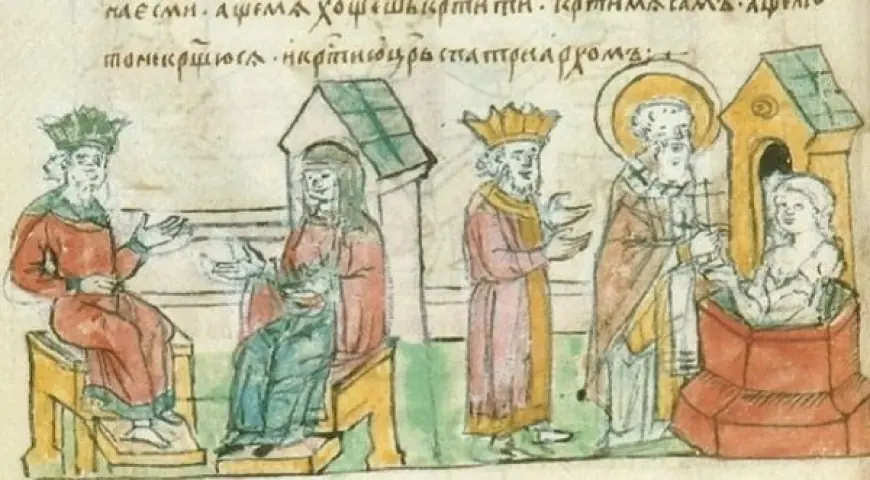 наесми · ащемѧ хощешькр҃тити · кр҃тимѧ самъ · ащели
тонекрщ҃юсѧ · икр҃тиюцр҃ьспатреархомъ: